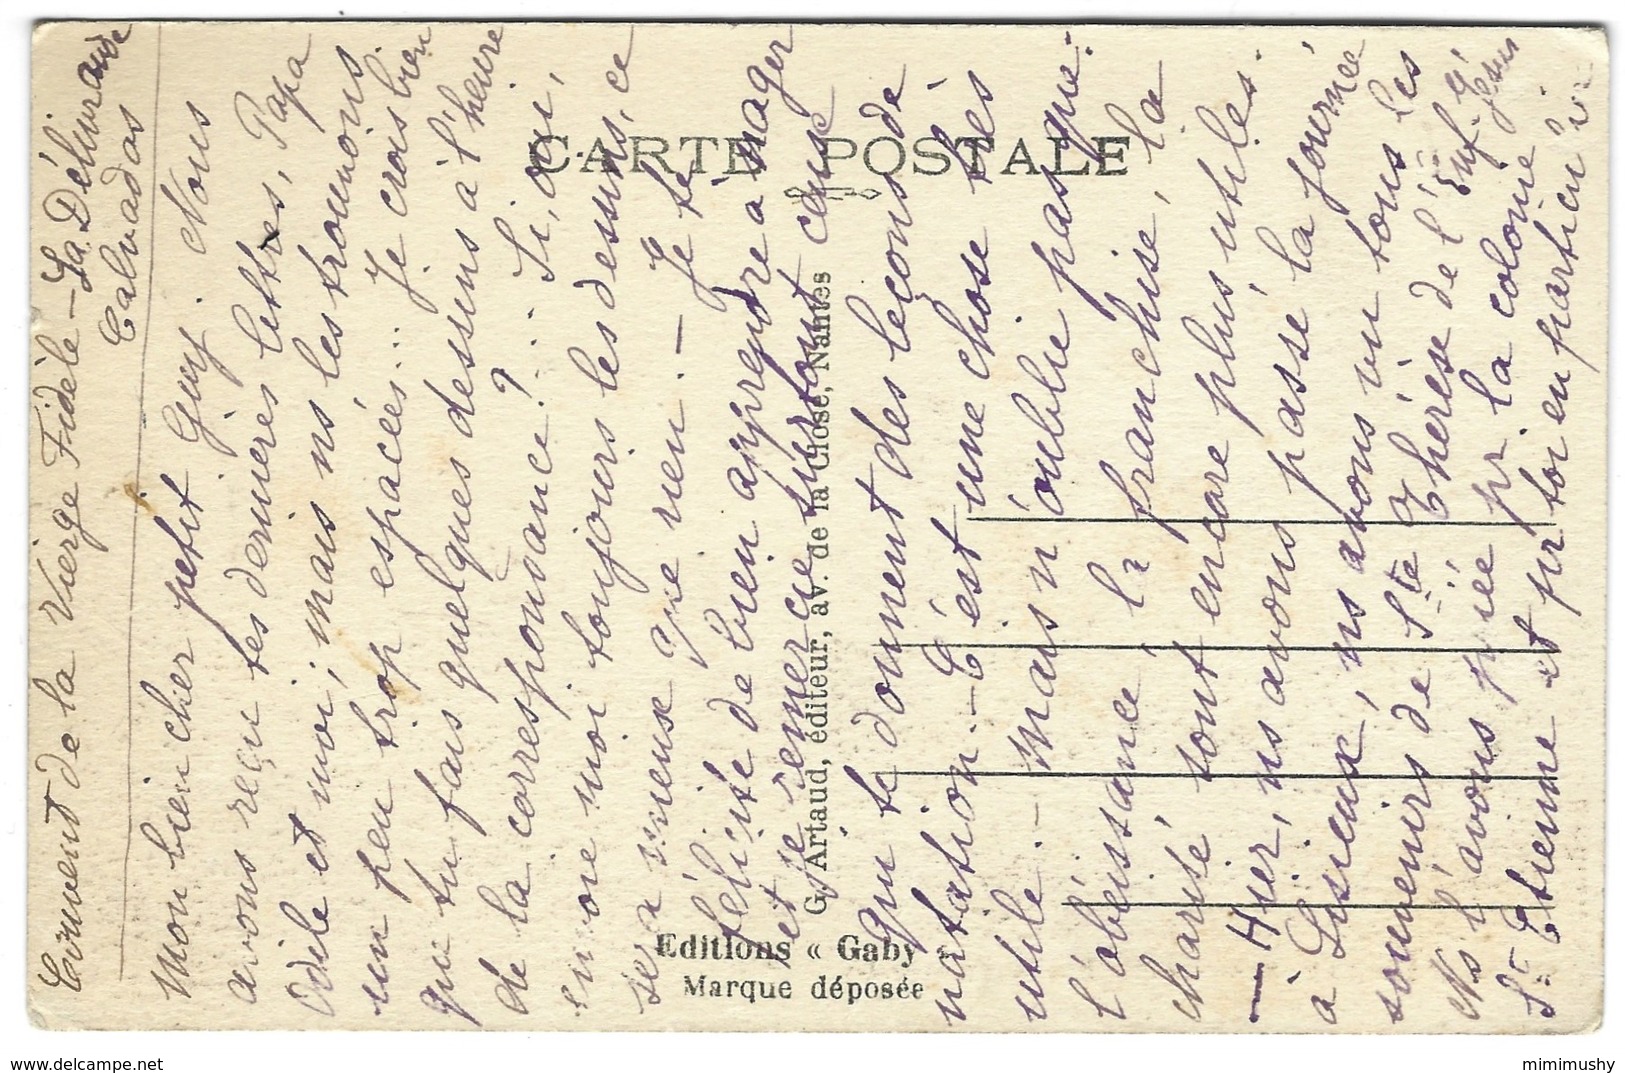 Couvent de la Vierge Fidèle – La Délivrande
Calvados
Mon bien cher petit Guy. Nous
avons reçu tes dernières lettres, Papa
Odile et moi ; mais ns les trouvons
un peu trop espacées... Je crois bien
que tu fais quelques dessins à l'heure
de la correspondance ? ... Si, oui,
envoie moi toujours les dessins, ce
sera mieux que rien. – Je te
félicite de bien apprendre à nager
et je remercie surtout ceux
qui te donnent des leçons de
natation. – C'est une chose très
utile. – Mais n'oublie pas que :
l'obéissance, la franchise, la
charité, sont encore plus utiles.
– Hier, ns avons passé la journée
à Lisieux, ns avons vu tous les
souvenirs de Ste Thérèse de l'Enf. Jésus
Ns l'avons priée pr la colonie
St Etienne et pr toi en particulier
CARTE POSTALE
G. Artaud, éditeur, av. de la Close, Nantes
Editions « Gaby »
Marque déposée
www.delcampe.net
mimimushy